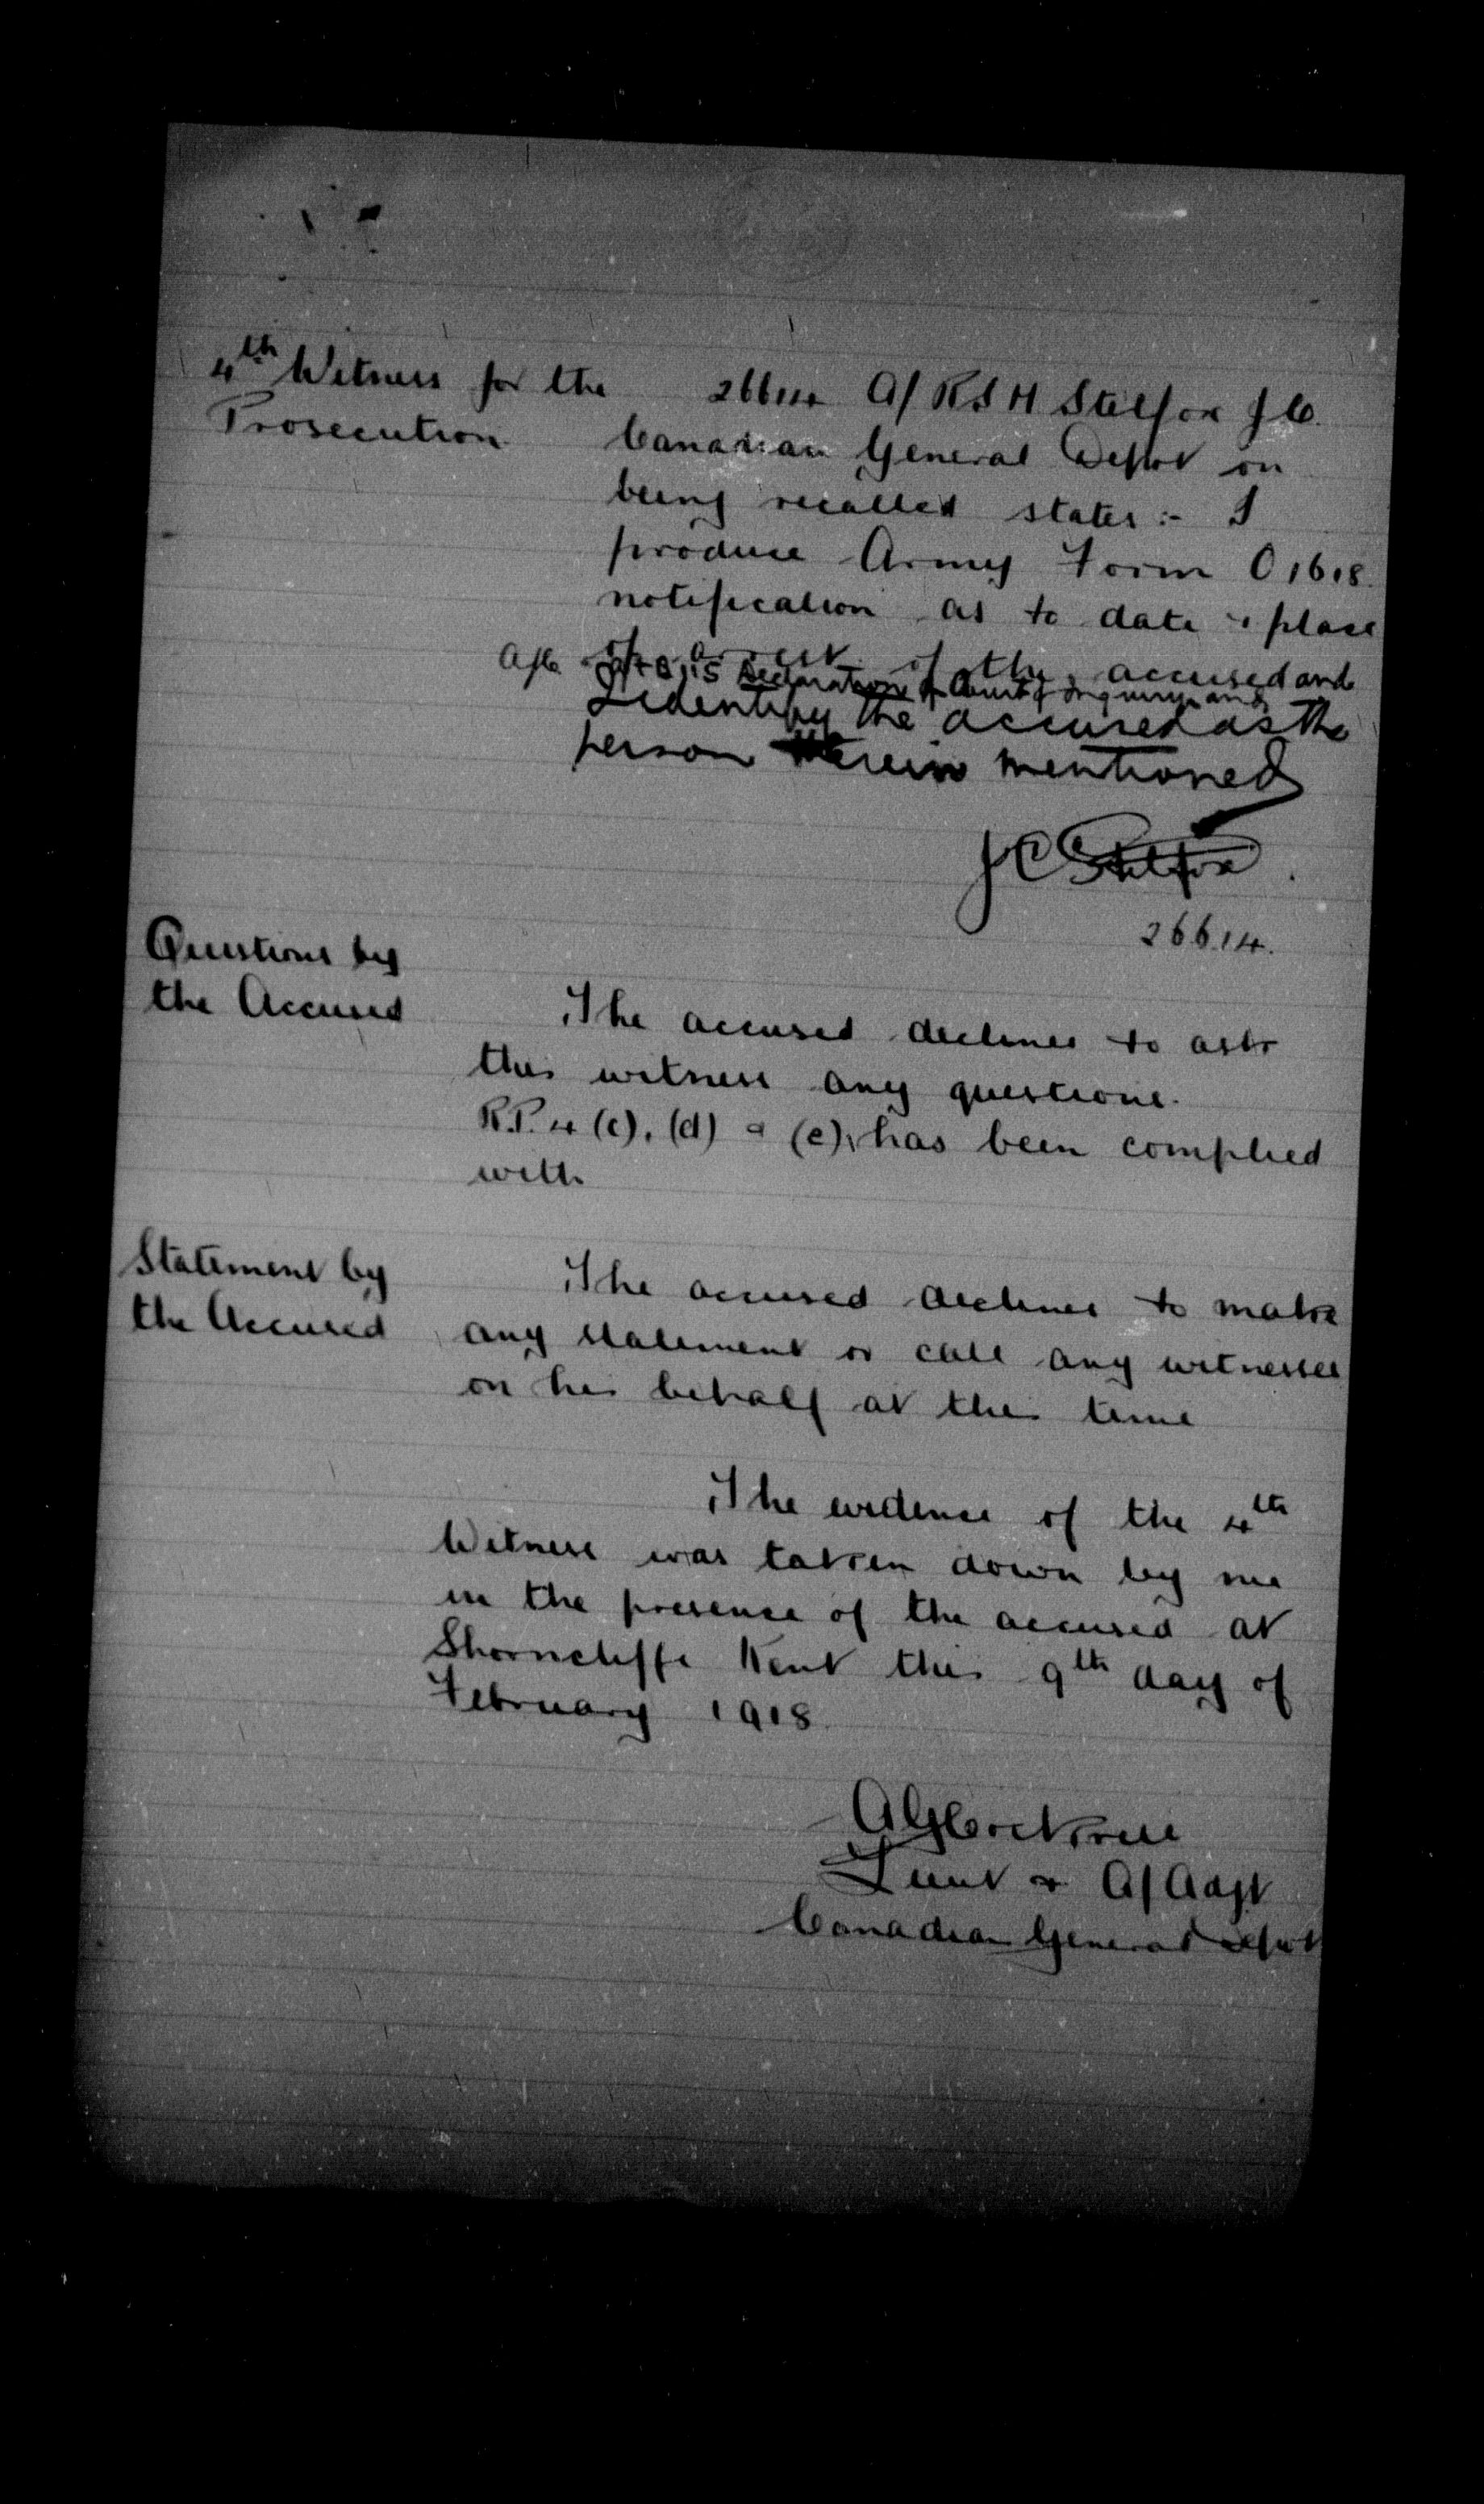 4th Witness for the
Prosecution
26614 A/RSM Stelfox J C.
Canadian General Depot on
being recalled states :- I
produce Army Form O 1618
notification as to date & place
of arrest of the accused and
Declaration of Court of Inquiry and
I identify the accused as the
person therein mentioned
J C Stelfox.
26614.
Questions by
the Accused
The accused declines to ask
this witness any questions.
R.P. 4 (c), (d) & (e), has been complied
with
Statement by
the Accused
The accused declines to make
any statement or call any witnesses
on his behalf at this time
The evidence of the 4th
Witness was taken down by me
in the presence of the accused at
Shorncliffe Kent this 9th day of
February 1918
Lieut & A/Adjt
Canadian General Depot